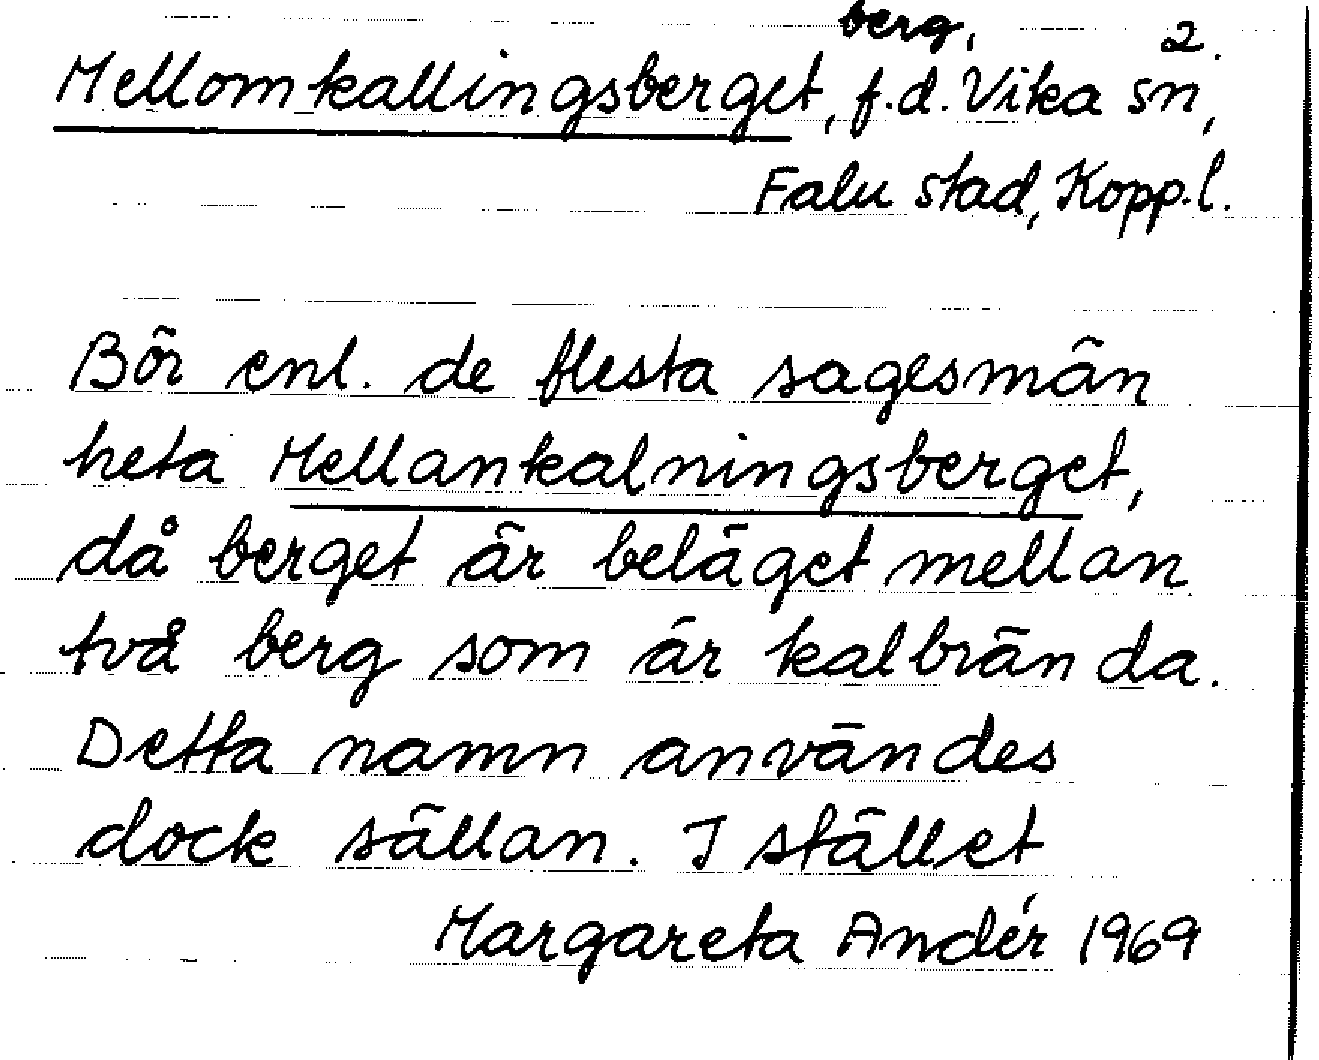 berg, 2.
Mellomkallingsberget, f.d. Vika sn,
Falu stad, Kopp.l.
Bör enl. de flesta sagesmän
heta Mellankalningsberget,
då berget är beläget mellan
två berg som är kalbrända.
Detta namn användes
dock sällan. I stället
Margareta Andér 1969